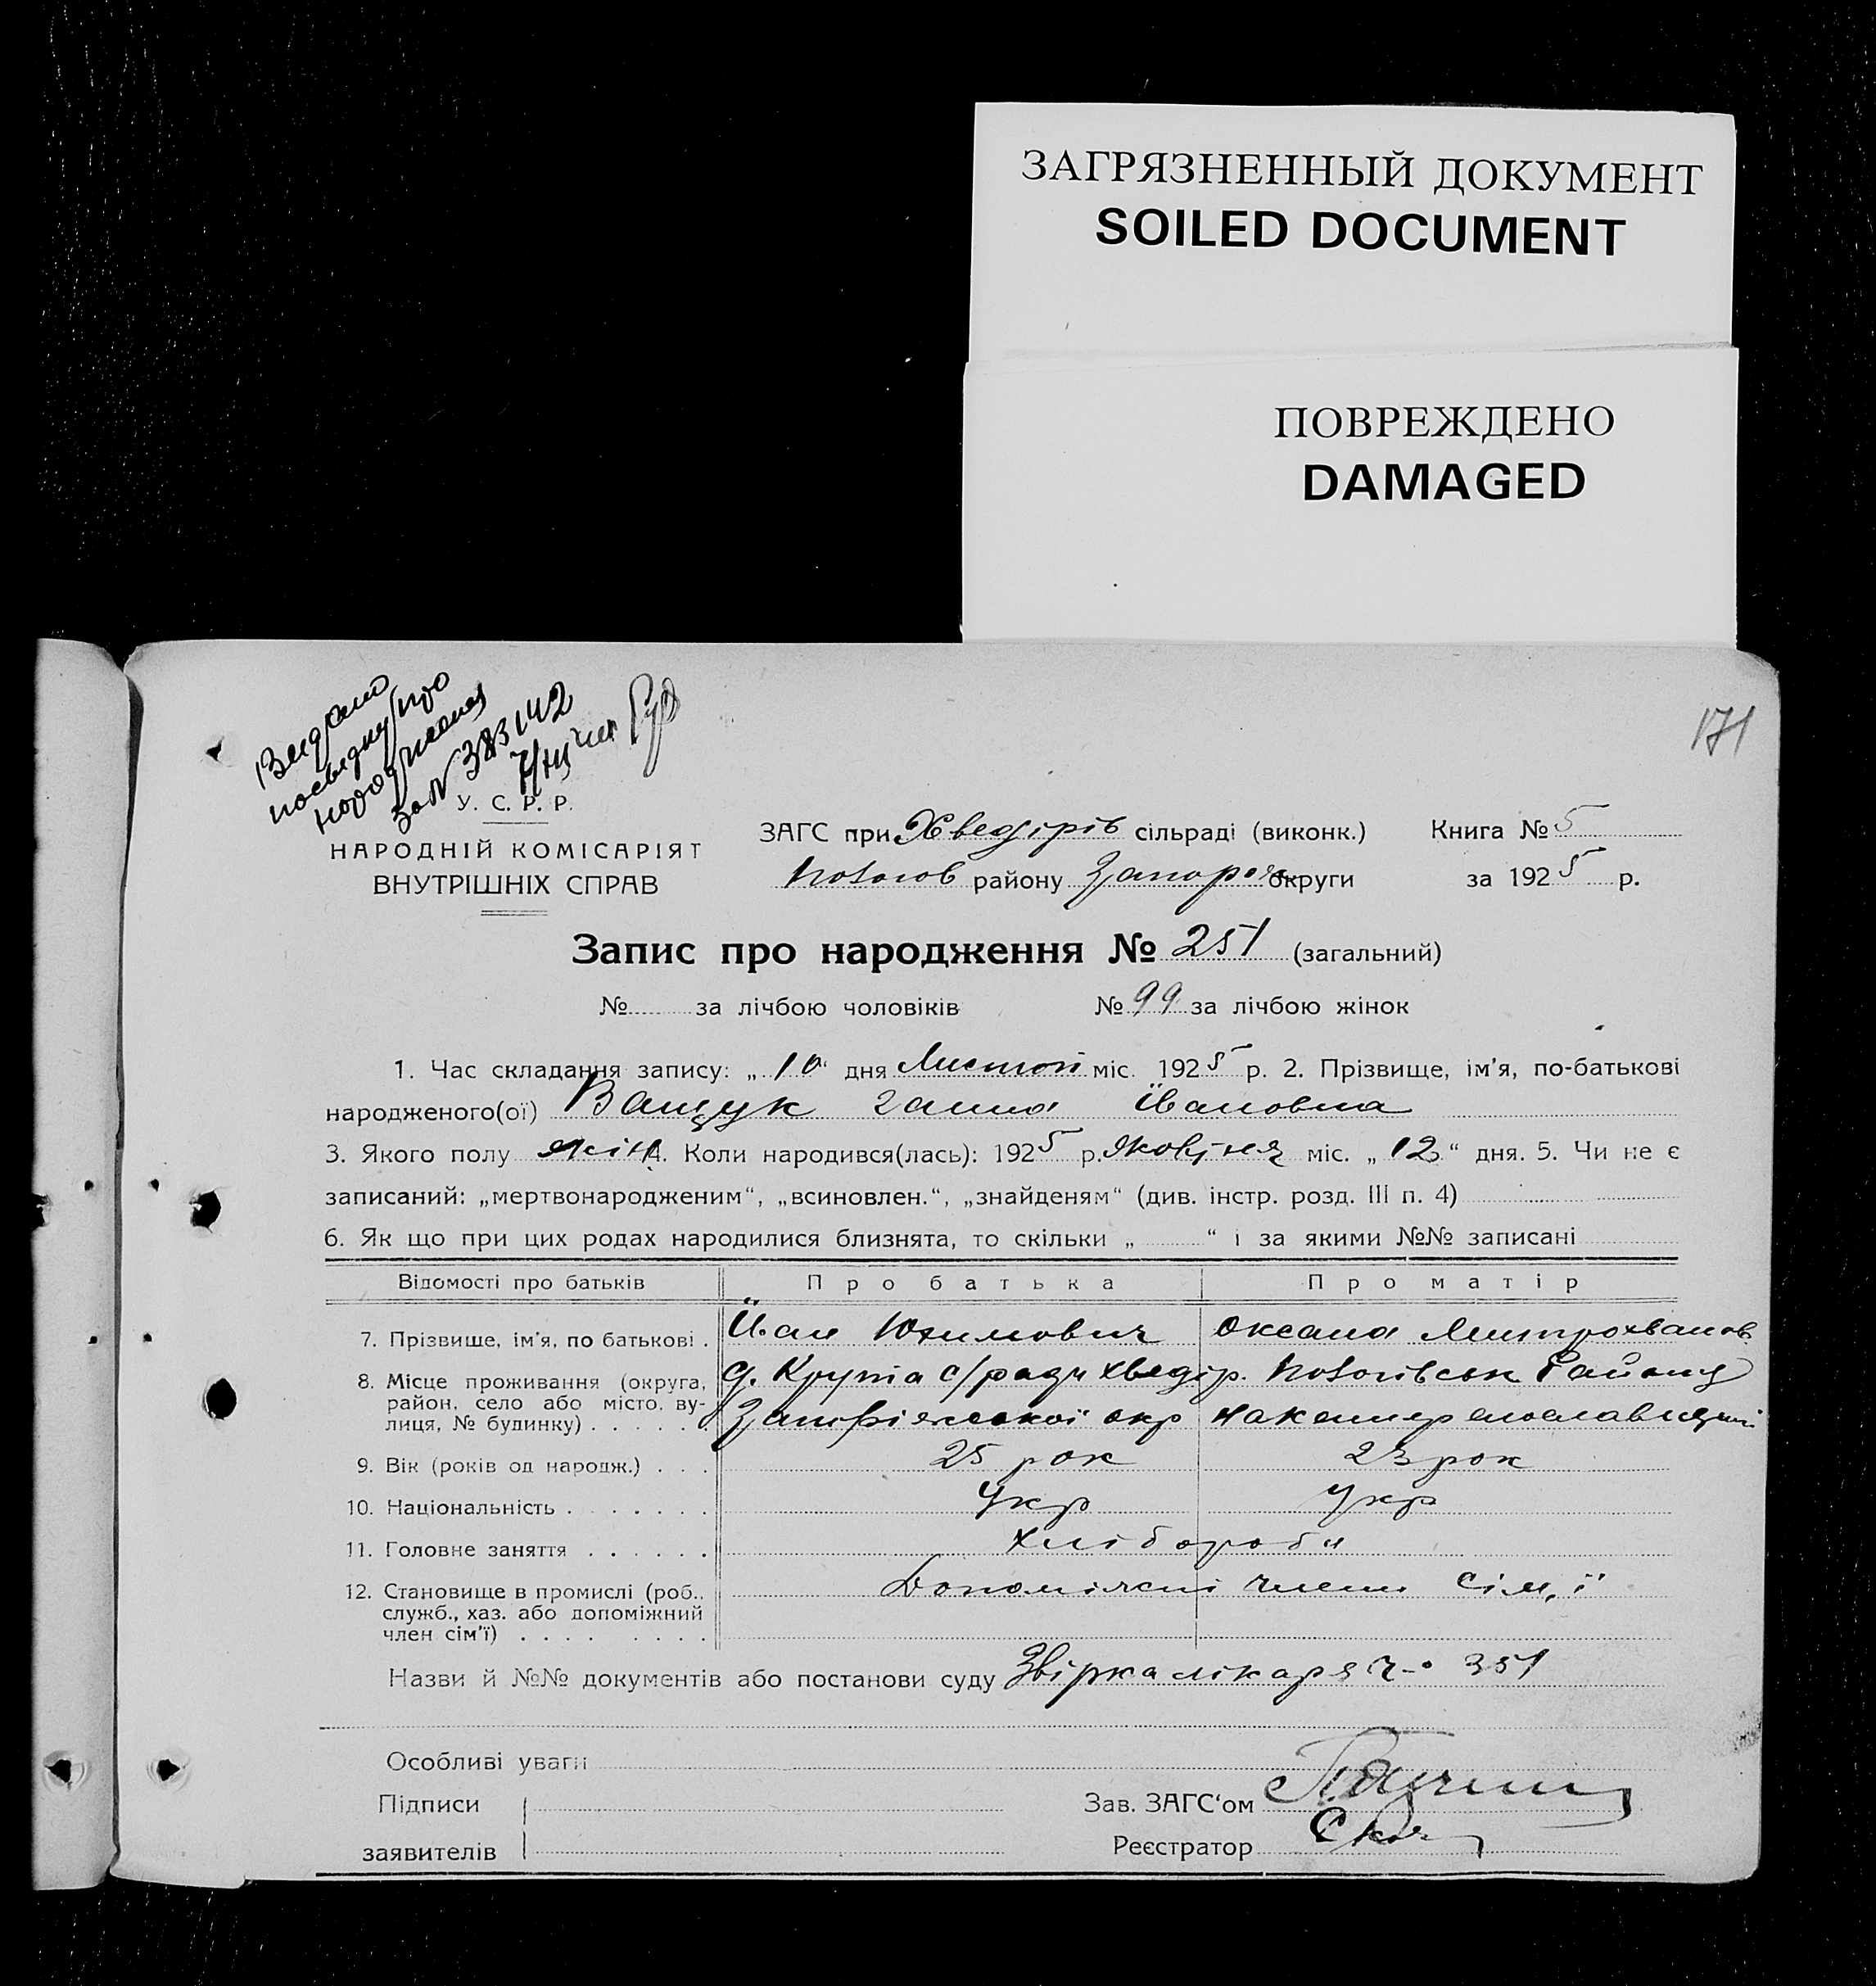 ЗАГРЯЗНЕННЫЙ ДОКУМЕНТ
SOILED DOCUMENT
ПОВРЕЖДЕНО
DAMAGED
171
Видано
посвідку про
народження
за № 383142
У. С. Р. Р.
НАРОДНІЙ КОМІСАРІЯТ
ВНУТРІШНІХ СПРАВ
ЗАГС при Хведірів сільраді (виконк.) Книга № 5
району округи за 1925 р.
Запис про народження № 251 (загальний)
№ за лічбою чоловіків № 99 за лічбою жінок
1. Час складання запису: „10“ дня Листоп міс. 1925 р. 2. Прізвище, ім'я, по-батькові
народженого(ої) Ващук Ганна Івановна
3. Якого полу жін 4. Коли народився(лась): 1925 р. Жовтня міс. „12“ дня. 5. Чи не є
записаний: „мертвонародженим“, „всиновлен.“, „знайденям“ (див. інстр. розд. III п. 4)
6. Як що при цих родах народилися близнята, то скільки „ “ і за якими №№ записані
Відомості про батьків Про батька Про матір
7. Прізвище, ім'я, по батькові . Іван Юхимович Оксана Митрохванов
8. Місце проживання (округа, район, село або місто, вулиця, № будинку) с/ради хведір. Району
окр
9. Вік (років од народж.) . . . 25 рок 23 рок
10. Національність . . . . . . . Укр Укр
11. Головне заняття . . . . . . хлібороби
12. Становище в промислі (роб., служб., хаз. або допоміжний член сім'ї) . . . . Допоміжні члени сім,ї
Назви й №№ документів або постанови суду лікаря ч-о 351
Особливі уваги
Підписи
заявителів
Зав. ЗАГС'ом
Реєстратор